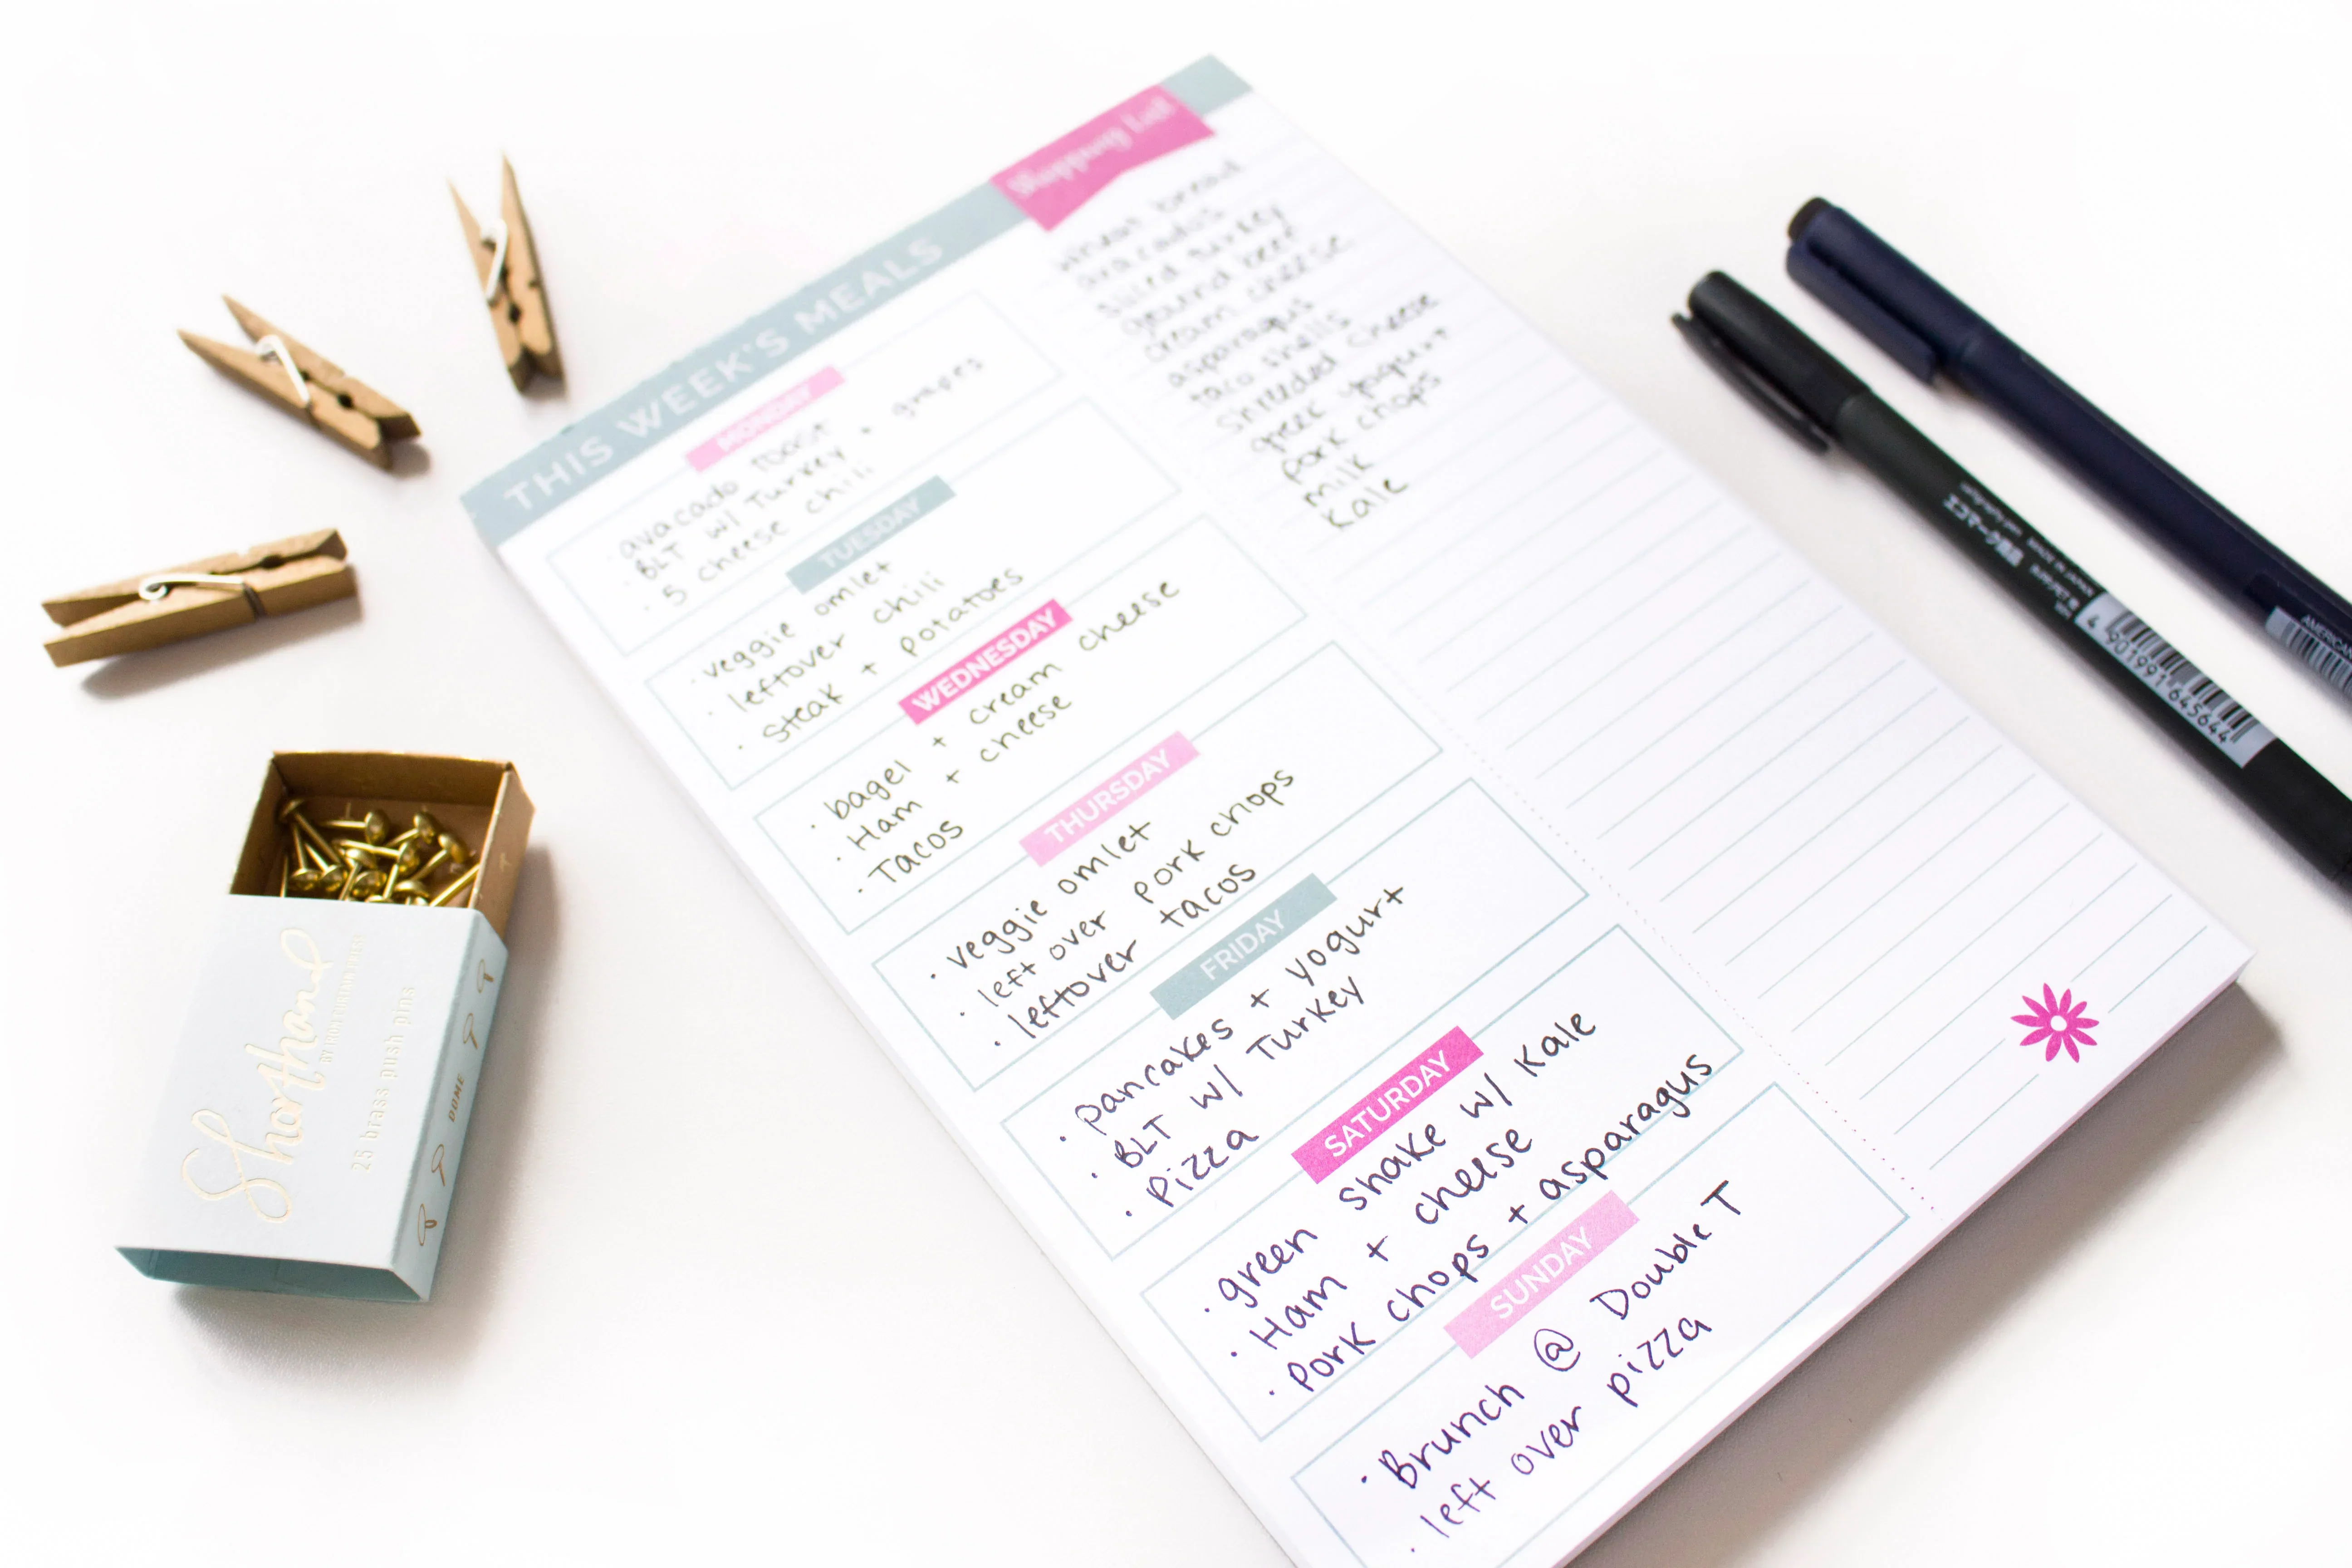 THIS WEEK'S MEALS
MONDAY
avacado toast
BLT w/ Turkey + grapes
5 cheese chili
TUESDAY
veggie omlet
leftover chili
steak + potatoes
WEDNESDAY
bagel + cream cheese
Ham + cheese
Tacos
THURSDAY
veggie omlet
left over pork chops
leftover tacos
FRIDAY
pancakes + yogurt
BLT w/ Turkey
Pizza
SATURDAY
green shake w/ Kale
Ham + cheese
Pork chops + asparagus
SUNDAY
Brunch @ Double T
left over pizza
Shopping List
wheat bread
avacados
sliced turkey
ground beef
cream cheese
asparagus
taco shells
shredded cheese
greek yogurt
pork chops
milk
kale
Shorthand
25 brass push pins
DOME
エコマーク商品
4 901991 645644